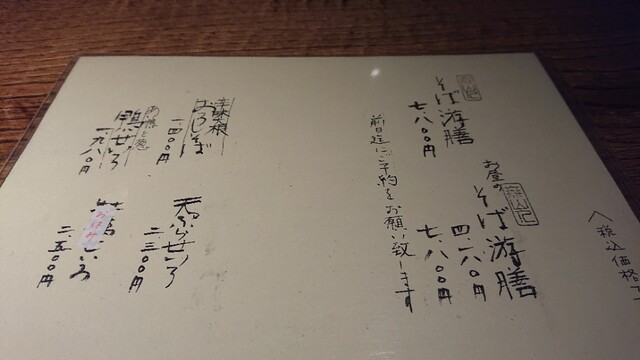 税込価格
お昼の
そば游膳
四、一八〇円
七、八〇〇円
そば游膳
七、八〇〇円
前日迄にご予約をお願い致します
辛味大根
おろしそば
一、四〇〇円
天ぷらせいろ
二、三〇〇円
鴨せいろ
一、九八〇円
お休み
二、五〇〇円